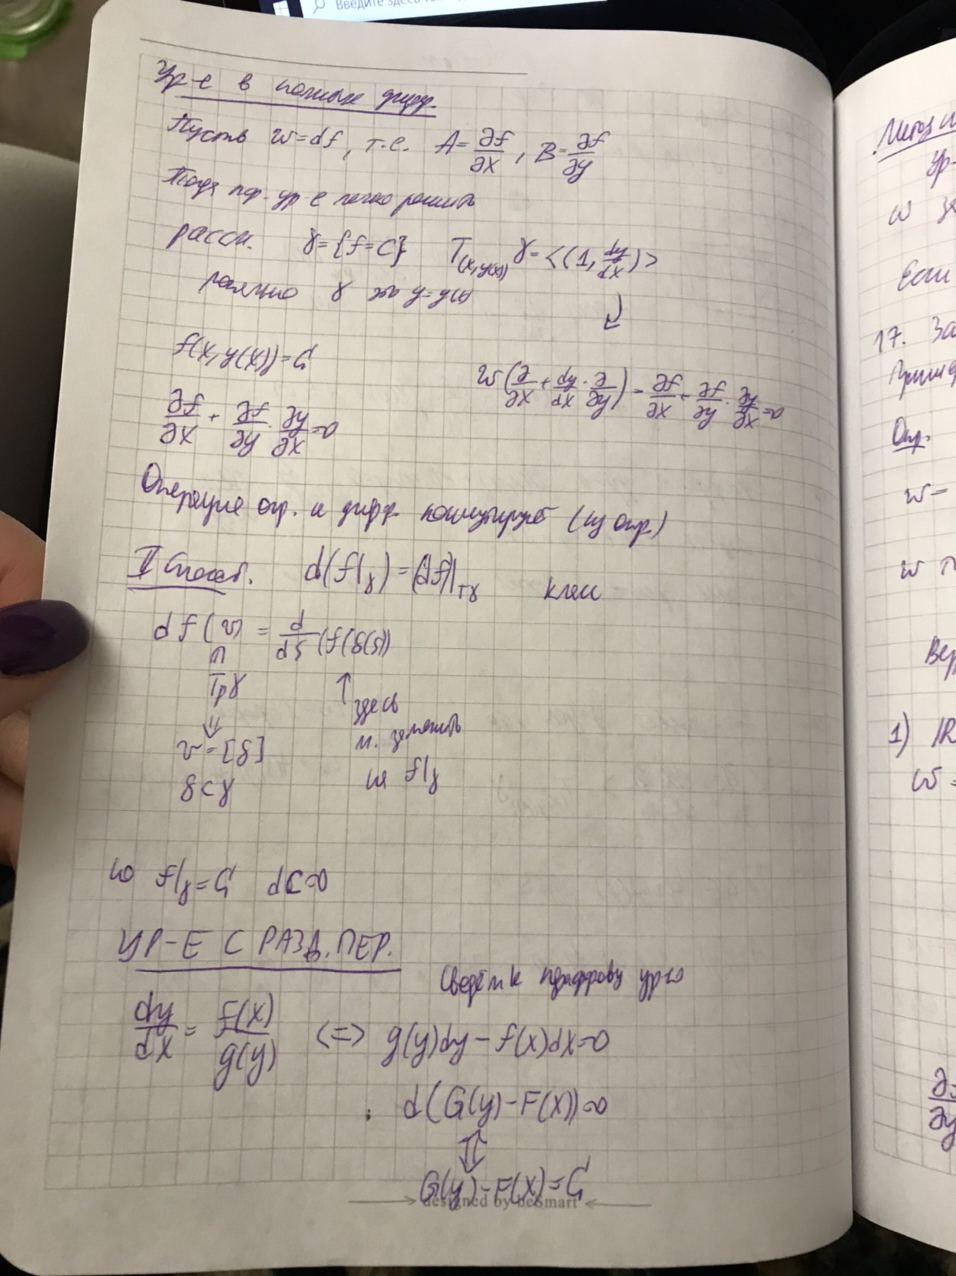 Введите здесь
Ур-е в полных дифф.
Пусть w=df, т.е. A=∂f/∂x, B=∂f/∂y
Тогда пф. ур-е легко решить
рассм. γ={f=C} T(x,y(x))γ=<(1, dy/dx)>
локально γ это y=y(x)
f(x,y(x))=C
w(∂/∂x + dy/dx · ∂/∂y) = ∂f/∂x + ∂f/∂y · ∂y/∂x =0
∂f/∂x + ∂f/∂y · ∂y/∂x =0
Операция огр. и дифф. коммутирует (из опр.)
II Способ. d(f|γ)=(df)|Tγ класс
df(v) = d/ds (f(δ(s)))
∩
Tpγ ↑ здесь
⇓ м. заменить
v=[δ] на f|γ
δ⊂γ
но f|γ=C dC=0
УР-Е С РАЗД.ПЕР.
Сведём к пфаффову ур-ю
dy/dx = f(x)/g(y) <=> g(y)dy-f(x)dx=0
d(G(y)-F(x))=0
⇕
G(y)-F(x)=C
designed by beSmart
Ур-
w
Если
17. За
Опр.
w=
w
Вер
1) IR
w=